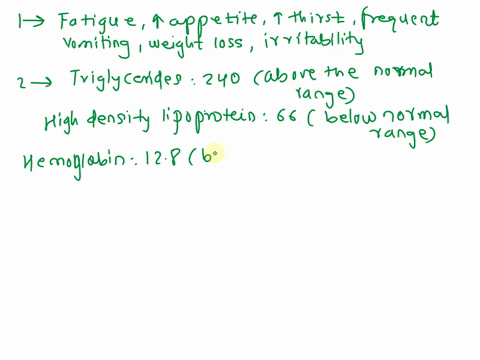 1→ Fatigue, ↑ appetite, ↑ thirst, frequent
vomiting, weight loss, irritability
2→ Triglycerides: 240 (above the normal
range)
High density lipoprotein: 66 (below normal
range)
Hemoglobin: 12.8 (b